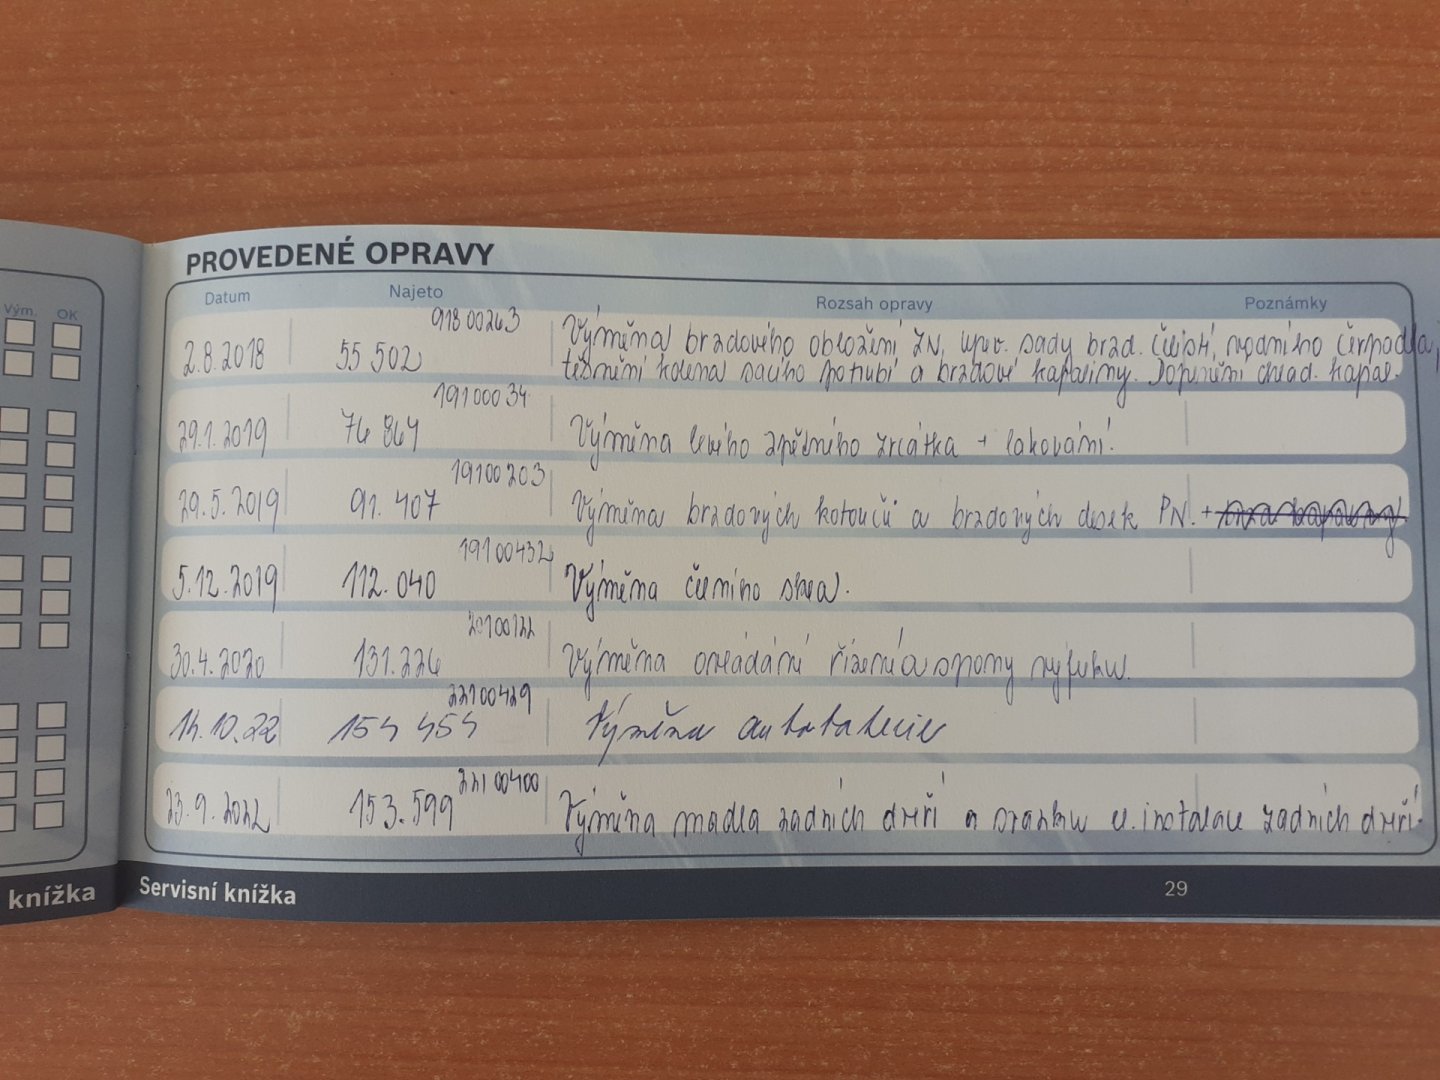 PROVEDENÉ OPRAVY
Vým. OK
Datum Najeto Rozsah opravy Poznámky
91800263
2.8.2018 55 502 Výměna brzdového obložení ZN, uprav. sady brzd. čelistí, vodního čerpadla,
těsnění kolena sacího potrubí a brzdové kapaliny. Doplnění chlad. kapal.
19100034
29.1.2019 76 864 Výměna levého zpětného zrcátka + lakování.
19100203
29.5.2019 91.407 Výměna brzdových kotoučů a brzdových desek PN. +
19100432
5.12.2019 112.040 Výměna čelního skla.
20100122
30.4.2020 131.226 Výměna ovládání řízení a spony výfuku.
22100429
14.10.22 154 454 Výměna autobaterie
22100400
23.9.2022 153.599 Výměna madla zadních dveří a svazku el. instalace zadních dveří.
knížka Servisní knížka 29